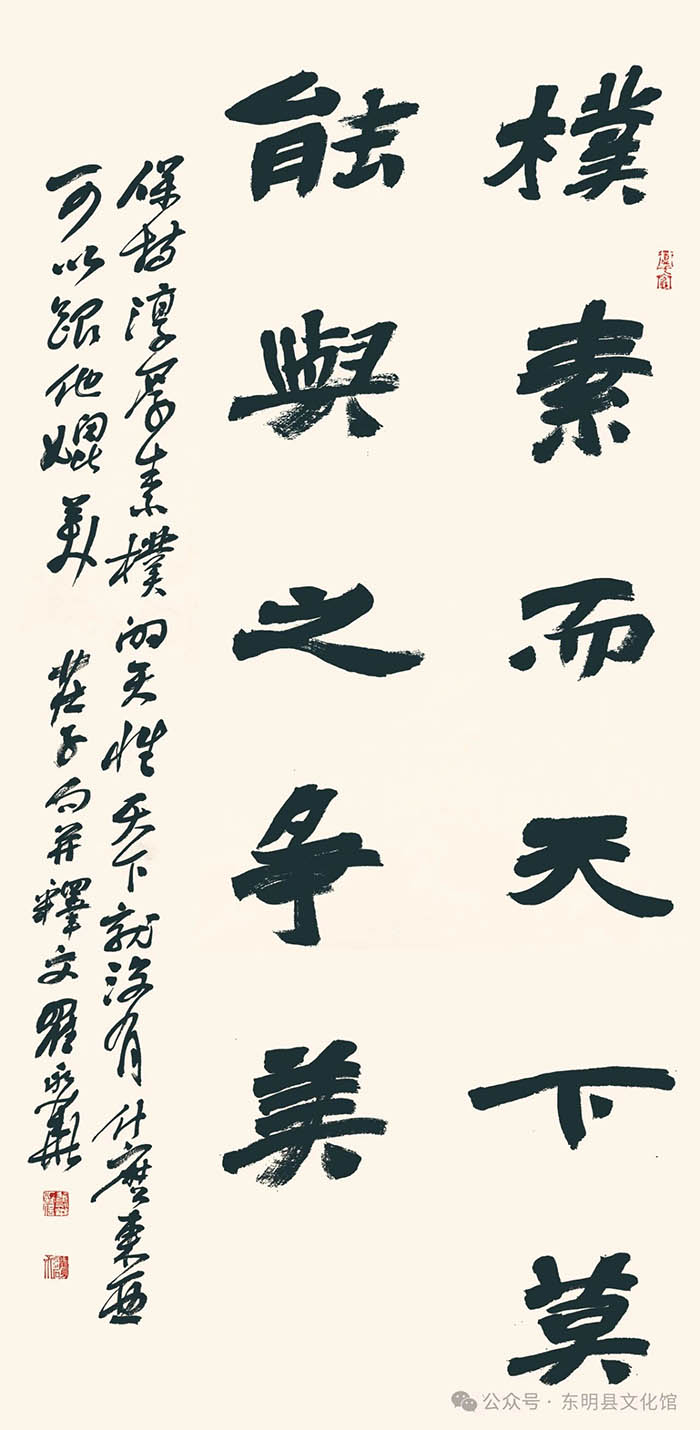 樸素而天下莫
能與之争美
保持淳厚素樸的天性天下就没有什麽東西
可以跟他媲美 莊子句并釋文
公众号·东明县文化馆